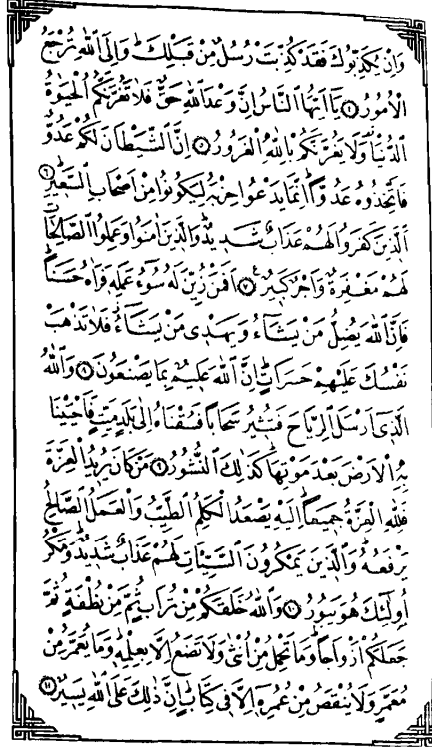 وَاِنْ يُكَذِّبُوكَ فَقَدْ كُذِّبَتْ رُسُلٌ مِنْ قَبْلِكَ وَاِلَى اللّٰهِ تُرْجَعُ
الْاُمُورُ ﴿٤﴾ يَٓا اَيُّهَا النَّاسُ اِنَّ وَعْدَ اللّٰهِ حَقٌّ فَلَا تَغُرَّنَّكُمُ الْحَيٰوةُ
الدُّنْيَا وَلَا يَغُرَّنَّكُمْ بِاللّٰهِ الْغَرُورُ ﴿٥﴾ اِنَّ الشَّيْطَانَ لَكُمْ عَدُوٌّ
فَاتَّخِذُوهُ عَدُوًّا اِنَّمَا يَدْعُوا حِزْبَهُ لِيَكُونُوا مِنْ اَصْحَابِ السَّعِيرِ ﴿٦﴾
اَلَّذِينَ كَفَرُوا لَهُمْ عَذَابٌ شَدِيدٌ وَالَّذِينَ اٰمَنُوا وَعَمِلُوا الصَّالِحَاتِ
لَهُمْ مَغْفِرَةٌ وَاَجْرٌ كَبِيرٌ ﴿٧﴾ اَفَمَنْ زُيِّنَ لَهُ سُٓوءُ عَمَلِهِ فَرَاٰهُ حَسَنًا
فَاِنَّ اللّٰهَ يُضِلُّ مَنْ يَشَٓاءُ وَيَهْدِى مَنْ يَشَٓاءُ فَلَا تَذْهَبْ
نَفْسُكَ عَلَيْهِمْ حَسَرَاتٍ اِنَّ اللّٰهَ عَلِيمٌ بِمَا يَصْنَعُونَ ﴿٨﴾ وَاللّٰهُ
الَّذِٓى اَرْسَلَ الرِّيَاحَ فَتُثِيرُ سَحَابًا فَسُقْنَاهُ اِلٰى بَلَدٍ مَيِّتٍ فَاَحْيَيْنَا
بِهِ الْاَرْضَ بَعْدَ مَوْتِهَا كَذٰلِكَ النُّشُورُ ﴿٩﴾ مَنْ كَانَ يُرِيدُ الْعِزَّةَ
فَلِلّٰهِ الْعِزَّةُ جَمِيعًا اِلَيْهِ يَصْعَدُ الْكَلِمُ الطَّيِّبُ وَالْعَمَلُ الصَّالِحُ
يَرْفَعُهُ وَالَّذِينَ يَمْكُرُونَ السَّيِّـَٔاتِ لَهُمْ عَذَابٌ شَدِيدٌ وَمَكْرُ
اُو۬لٰٓئِكَ هُوَ يَبُورُ ﴿١٠﴾ وَاللّٰهُ خَلَقَكُمْ مِنْ تُرَابٍ ثُمَّ مِنْ نُطْفَةٍ ثُمَّ
جَعَلَكُمْ اَزْوَاجًا وَمَا تَحْمِلُ مِنْ اُنْثٰى وَلَا تَضَعُ اِلَّا بِعِلْمِهِ وَمَا يُعَمَّرُ مِنْ
مُعَمَّرٍ وَلَا يُنْقَصُ مِنْ عُمُرِهِٓ اِلَّا فِى كِتَابٍ اِنَّ ذٰلِكَ عَلَى اللّٰهِ يَسِيرٌ ﴿١١﴾